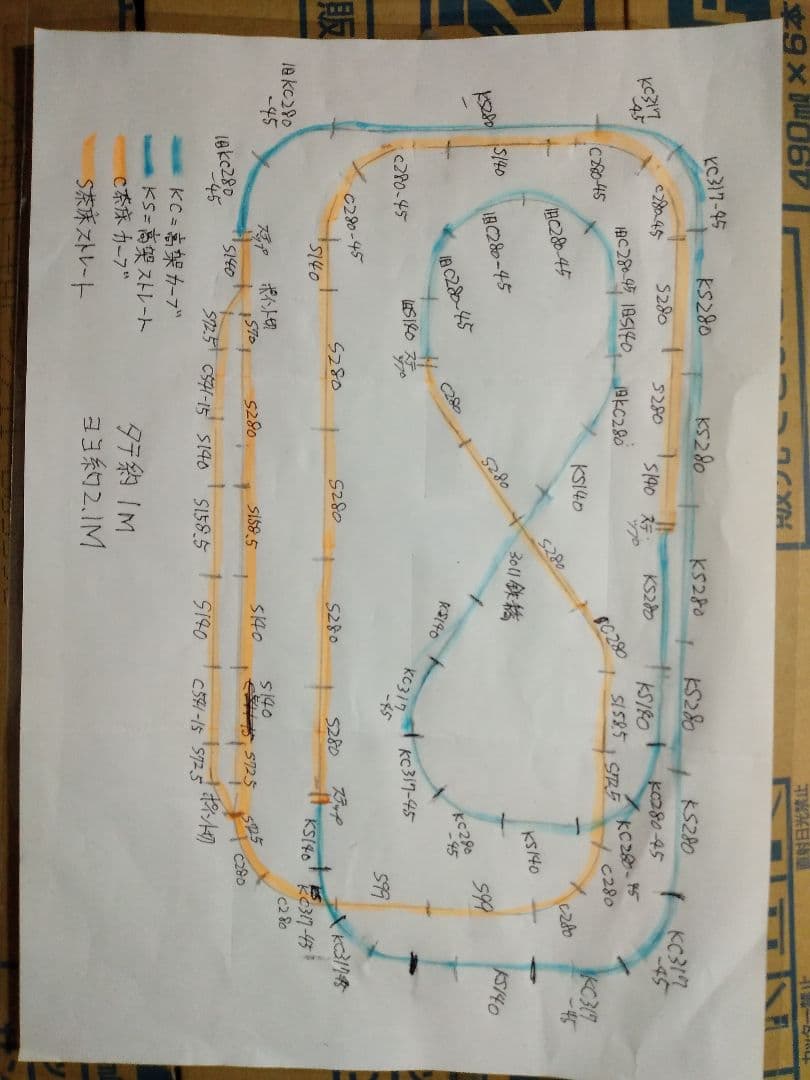 旧KC280
-45
KS280
KC317
-45
KC317-45
旧KC280
-45
C280-45
S140
C280-45
C280-45
C280-45
旧C280-45
旧C280-45
旧C280-45
旧C280-45
旧S140
旧S140
ステップ
S280
KS280
S280
KS280
S140
ステップ
KS280
KS280
KS180
KS280
KS280
ステップ
S140
ポイント切
S70
S72.5
C541-15
S140
S158.5
S140
C541-15
S72.5
ポイント切
S280
S158.5
S140
S140
S72.5
S72.5
C280
C280
S140
S280
S280
S280
S280
ステップ
KS140
KC317-45
KC317-45
C280
S280
旧KC280
KS140
S280
301鉄橋
KS140
KC317
-45
KC317-45
KC280
-45
KS140
C280
S158.5
S72.5
KC280-45
KC280-45
C280
C280
S99
S99
KS140
KC317
-45
KC317
-45
KC=高架カーブ
KS=高架ストレート
C=茶床カーブ
S茶床ストレート
タテ約1M
ヨコ約2.1M
販
本9×
480ml